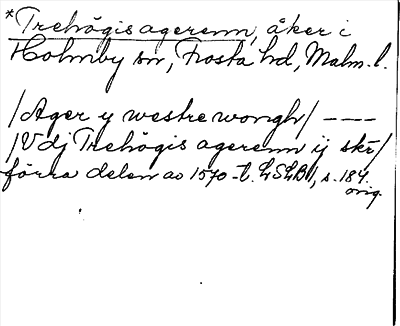 *Trehögis agerenn, åker i
Holmby sn, Frosta hd, Malm. l.
/Ager y westre wongh/ ----
/Vdj Trehögis agerenn ij skr/
förra delen av 1570-t. LSLB 1, s. 184.
orig.